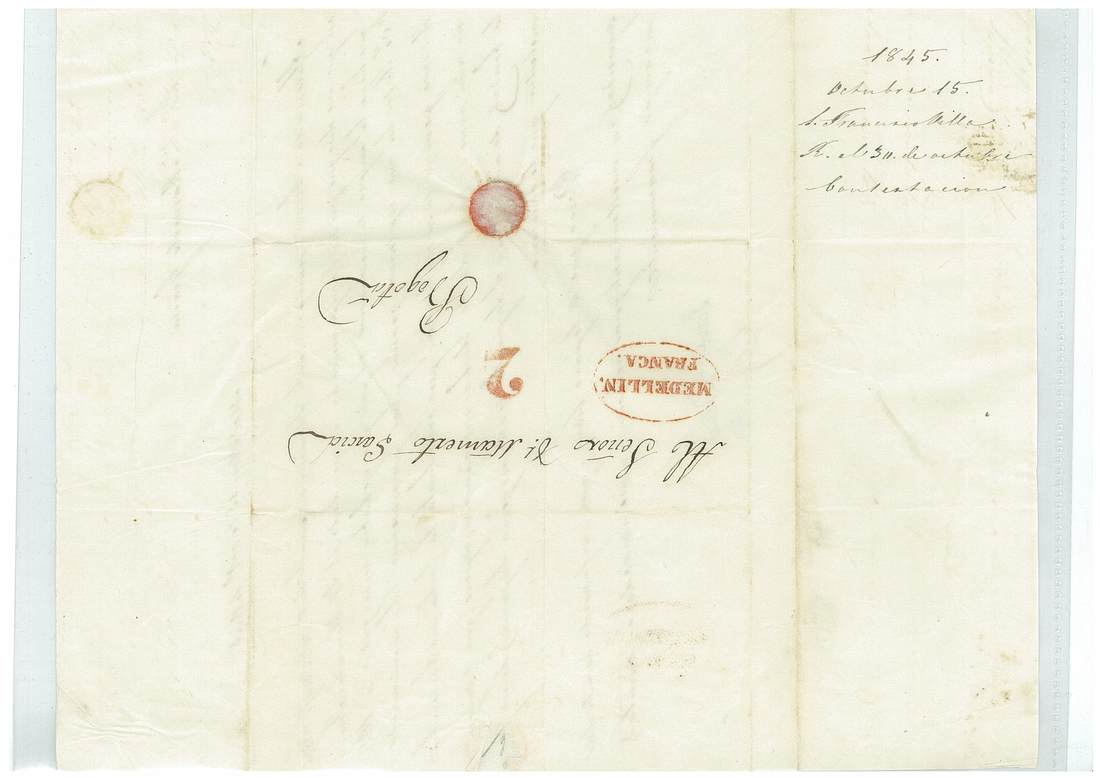 1845.
Octubre 15.
S. Francisco Villa.
R. el 30. de octubre
Contestacion
Al Señor Dr. Mamerto Garcia
MEDELLIN.
FRANCA.
2
Bogotá